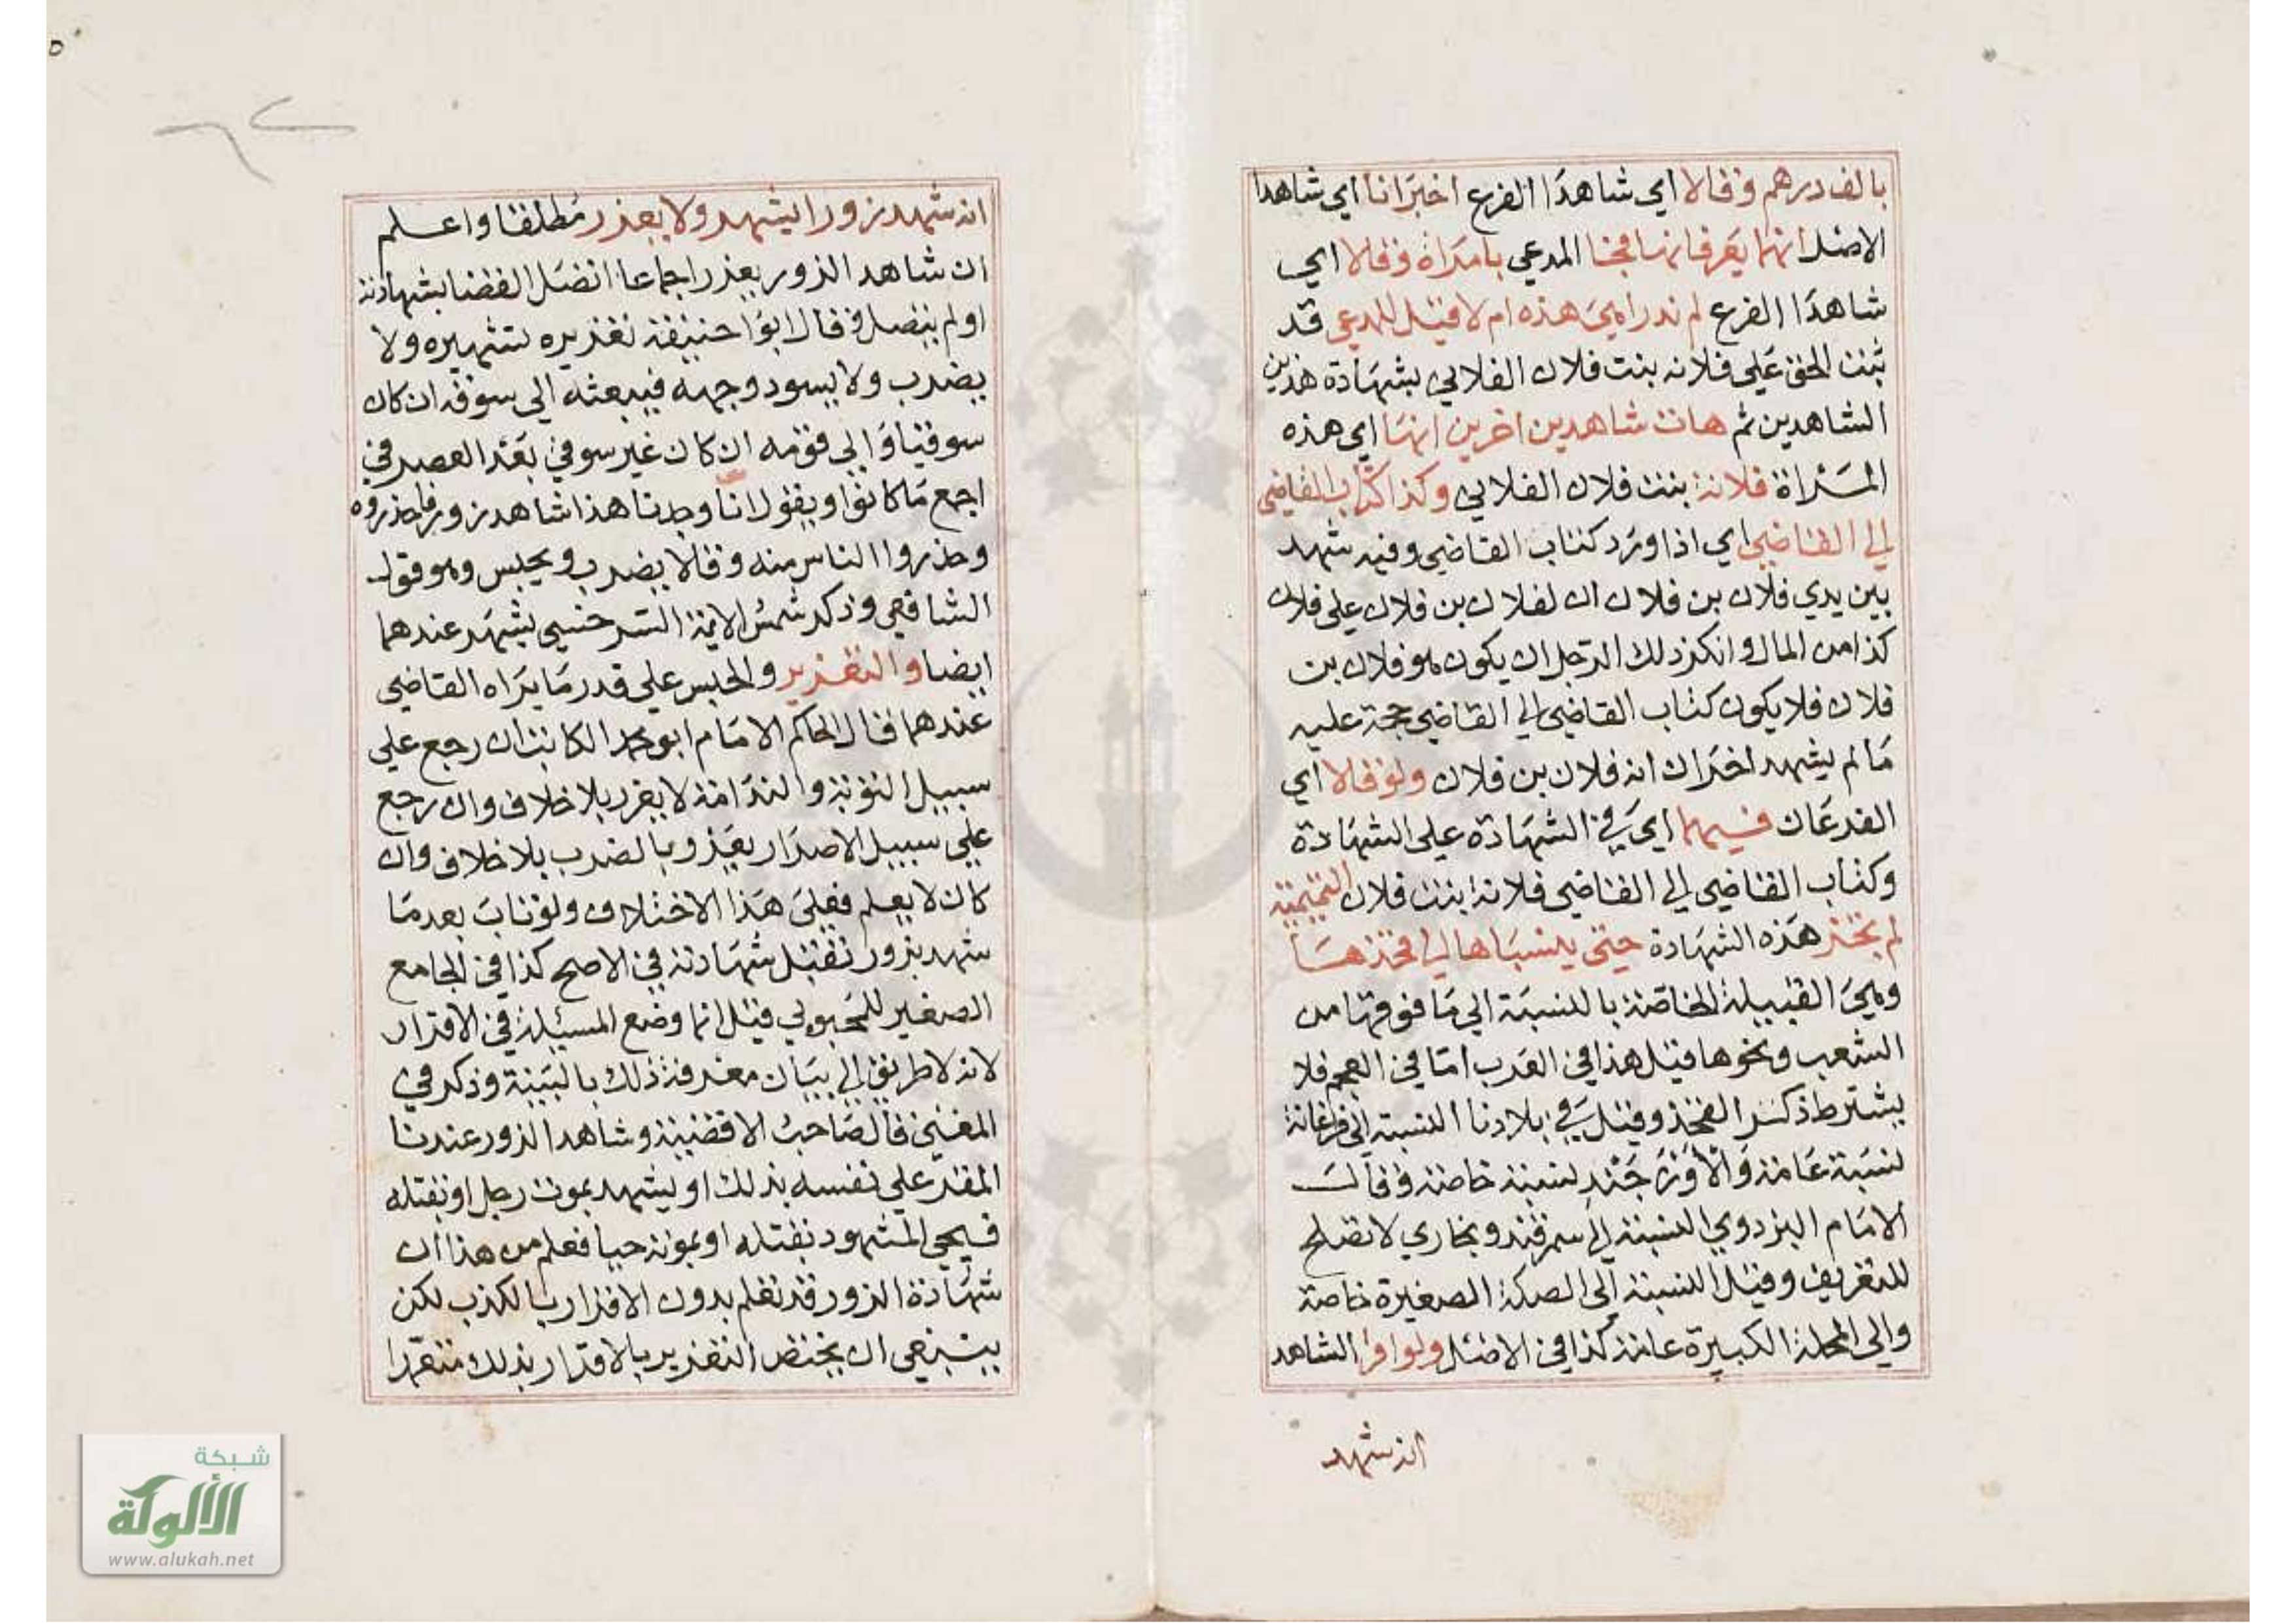 بالف درهم وقالا اي شاهدا الفرع اخبرانا اي شاهدا
الاصل انهما يعرفانها فجا المدعي بامراة وقالا اي
شاهدا الفرع لم ندر اهي هذه ام لا قيل للمدعي قد
ثبت الحق علي فلانه بنت فلان الفلاني بشهادة هذين
الشاهدين ثم هات شاهدين اخرين انها اي هذه
المراة فلانة بنت فلان الفلاني وكذا كتاب القاضي
الي القاضي اي اذا ورد كتاب القاضي وفيه شهد
بين يدي فلان بن فلان ان لفلان بن فلان علي فلان
كذا من المال وانكر ذلك الرجل ان يكون هو فلان بن
فلان فلا يكون كتاب القاضي الي القاضي حجة عليه
ما لم يشهد اخران انه فلان بن فلان ولو قالا اي
الفرعان فيهما اي في الشهادة علي الشهادة
وكتاب القاضي الي القاضي فلانة بنت فلان التميمية
لم يجز هذه الشهادة حتي ينسباها الي فخذها
وهي القبيلة الخاصة بالنسبة الي ما فوقها من
الشعب ونحوها قيل هذا في العرب اما في العجم فلا
يشترط ذكر الفخذ وقيل في بلادنا النسبة الي فرغانة
نسبة عامة والاوزجندية نسبة خاصة وقالـ
الامام البزدوي النسبة الي سمرقند وبخاري لا تصلح
للتعريف وقيل النسبة الي السكة الصغيرة خاصة
والي المحلة الكبيرة عامة كذا في الاصل ولو اقر الشاهد
انه شهد
انه شهد زورا يشهر ولا يعذر مطلقا واعلم
ان شاهد الزور يعذر اجماعا اتصل القضا بشهادته
اولم يتصل فقال ابوا حنيفة تعذيره تشهيره ولا
يضرب ولا يسود وجهه فيبعثه الي سوقه ان كان
سوقيا والي قومه ان كان غير سوقي بعد العصر في
اجمع ما كانوا ويقول انا وجدنا هذا شاهد زور فاحذروه
وحذروا الناس منه وقالا يضرب ويحبس وهو قول
الشافعي وذكر شمس الايمة السرخسي يشهر عندهما
ايضا والتعزير والحبس علي قدر ما يراه القاضي
عندهما قال الحاكم الامام ابو محمد الكاتب ان رجع علي
سبيل التوبة والندامة لا يعزر بلا خلاف وان رجع
علي سبيل الاصرار يعزر بالضرب بلا خلاف وان
كان لا يعلم فعلي هذا الاختلاف ولو تاب بعد ما
شهد بزور تقبل شهادته في الاصح كذا في الجامع
الصغير للمحبوبي قيل انما وضع المسيلة في الاقرار
لانه لا طريق الي بيان معرفة ذلك بالبينة وذكر في
المغني قال صاحب الاقضية وشاهد الزور عندنا
المقر علي نفسه بذلك او يشهد بموت رجل او بقتله
فيجي المشهود بقتله او بموته حيا فعلم من هذا ان
شهادة الزور قد تعلم بدون الاقرار بالكذب لكن
ينبغي ان يختص التعزير بالاقرار بذلك متعمدا
شبكة
الألوكة
www.alukah.net